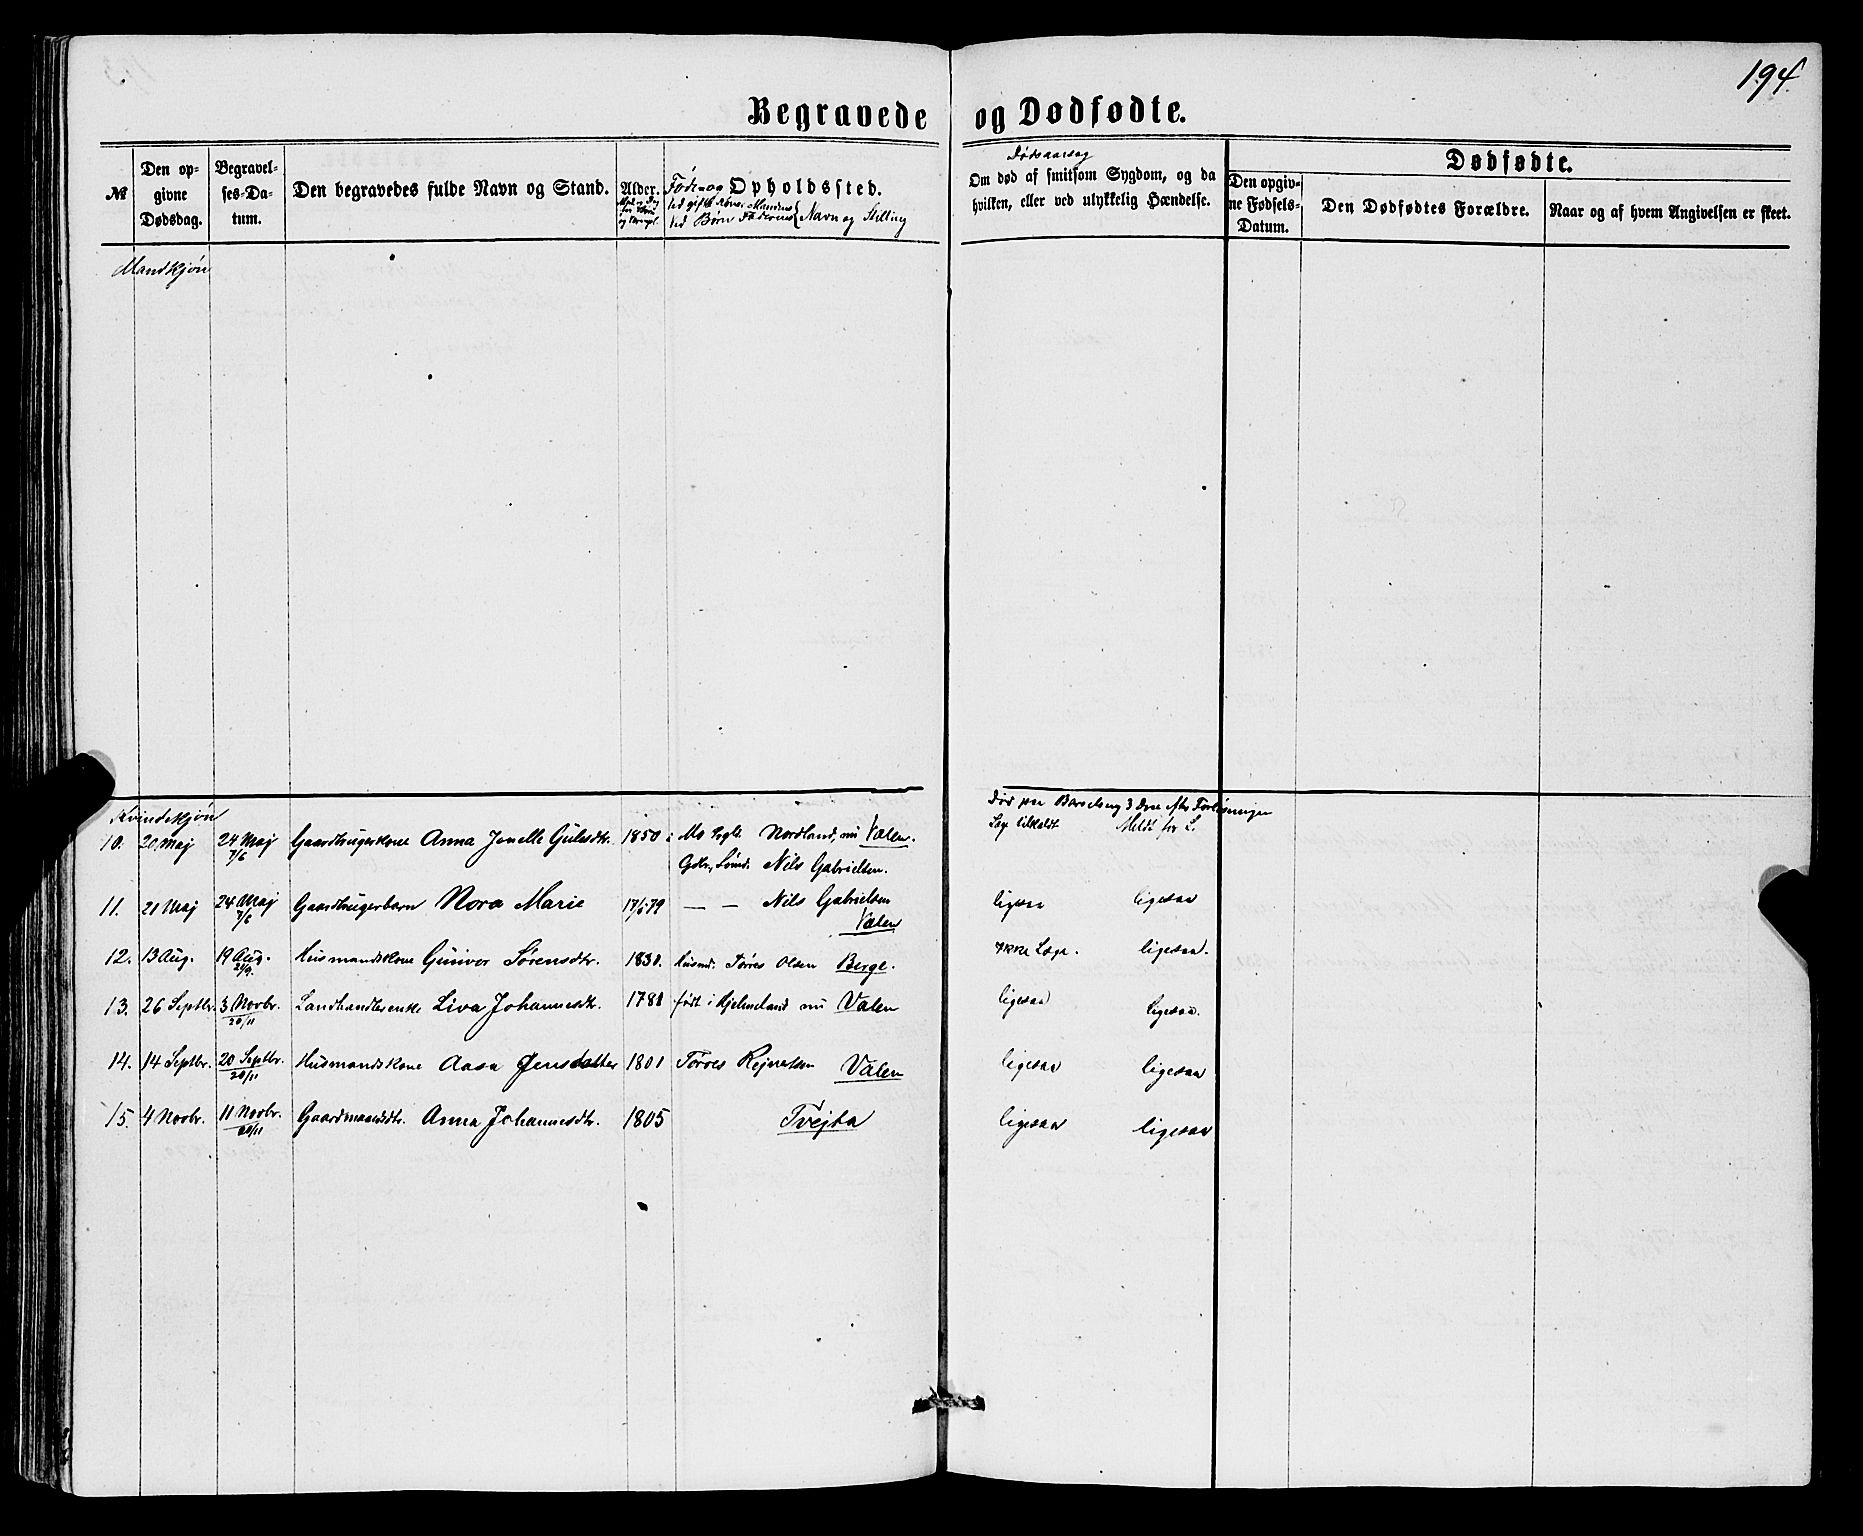 194.
Begravede og Dødfødte.
№
Den opgivne Dødsdag.
Begravelses-Datum.
Den begravedes fulde Navn og Stand.
Alder.
Føde- og Opholdssted.
Ved gifte Koner Mandens
Ved Børn Faderens } Navn og Stilling
Dødsaarsag
Om død af smitsom Sygdom, og da hvilken, eller ved ulykkelig Hændelse.
Dødfødte.
Den opgivne Fødsels-Datum.
Den Dødfødtes Forældre.
Naar og af hvem Angivelsen er skeet.
Mandkjøn
Kvindekjøn
Død paa Barselseng 3 Dage efter Forløsningen
Læge tilkaldt Meldt for L.
10. 20 Maj 24 Maj 7/6 Gaardbrugerkone Anna Jonelle Gulesdtr. 1850 Mo Sogn Nordland, nu Valen.
Gdbr. Nils Gabrielsen.
11. 21 Maj 24 Maj 7/6 Gaardbrugerbarn Nora Marie 17/5 79 — — Nils Gabrielsen Valen ligesaa ligesaa
12. 13 Aug. 19 Aug. 21/9. Husmandskone Gunvor Sørensdtr. 1830. Husmd. Tørres Olsen Berge. Ikke Læge. ligesaa.
13. 26 Septbr. 3 Novbr. 20/11 Landhandlerenke Liva Johannesdtr. 1781 født i Hjelmeland nu Valen ligesaa ligesaa.
14. 14 Septbr. 20 Septbr. 20/11 Husmandskone Aasa Jensdatter 1801 Tørres Rejnertsen Valen ligesaa ligesaa
15. 4 Novbr. 11 Novbr. 20/11 Gaardmandsdtr. Anna Johannesdtr. 1805 Tvejta ligesaa ligesaa